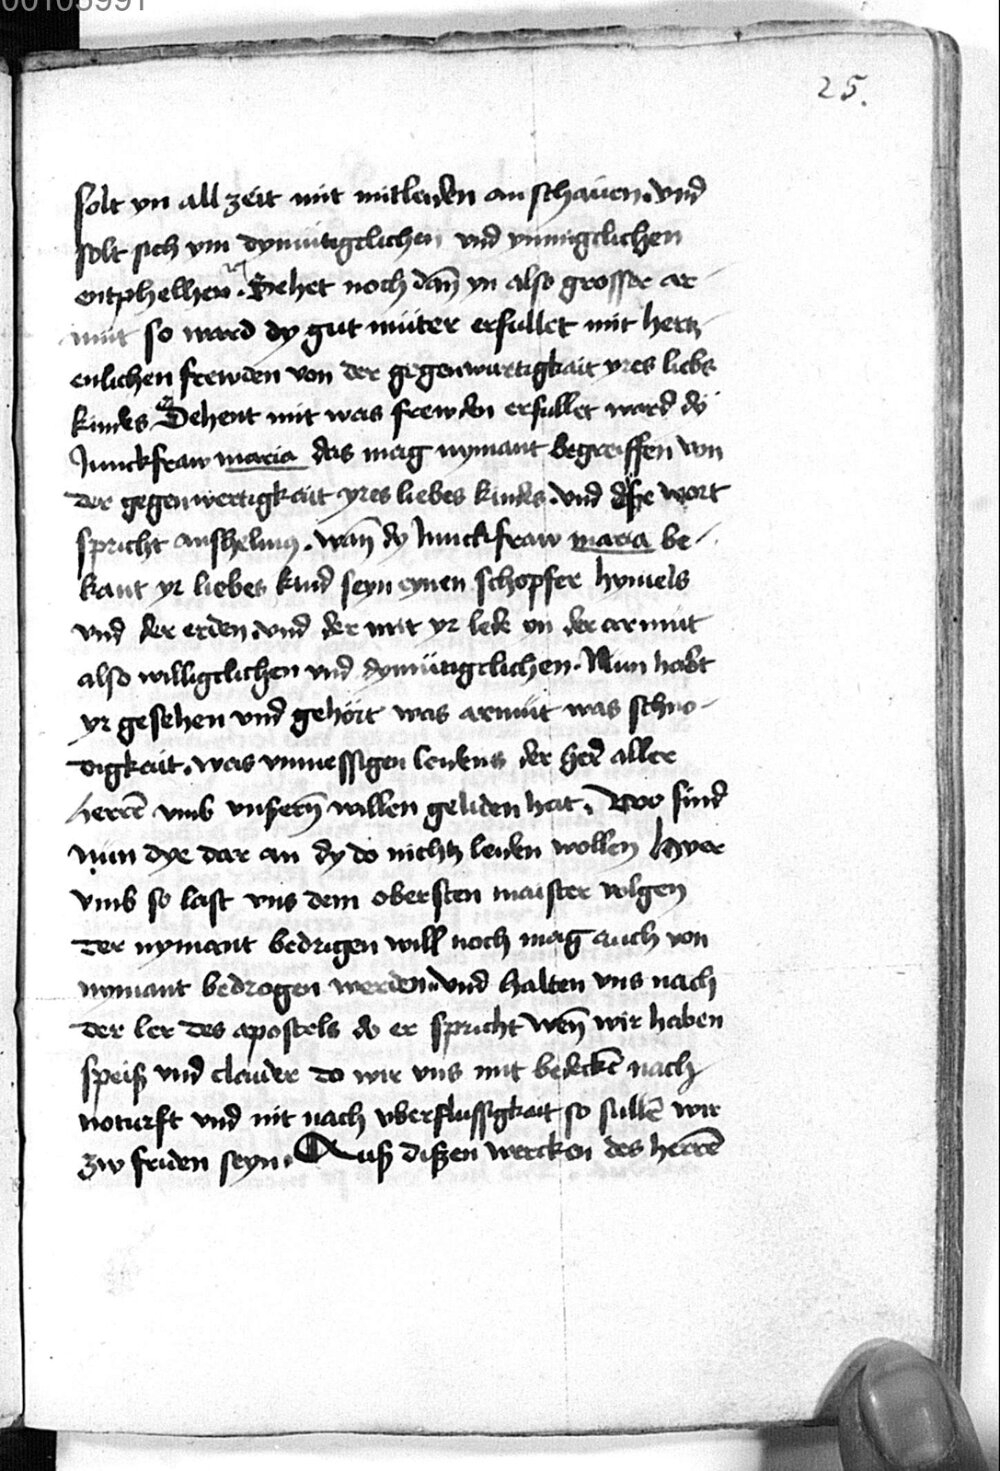 00105991
25.
solt yn all zeit mit mitleyden an schauen. vnd
solt sich ym dymutigclichen vnd ynnigclichen
entphelhen. Sehet noch dañ yn also grosser ar-
mut so ward dy gut muter erfullet mit hertz-
enlichen frewden von der gegenwurtigkait yres liebs
kindes. Sehent mit was frewden erfullet ward dy
Junckfraw maria das mag nymant begreiffen von
der gegenwertigkait yres liebes kindes. vnd dyße wort
spricht anshelmus. wañ dy Junckfraw maria be-
kant yr liebes kind seyn eynen schopfer hymels
vnd der erden. vnd der mit yr lebt yn der armut
also willigclichen vnd dymütigclichen. Nun habt
yr gesehen vnd gehört was armüt was schno-
digkait. was vnmessigen leydens der her aller
herrē vmb vnßerñ willen geliden hat. Woo sind
nün dye dar an dy do nichtz leyden wollen Hyer
vmb so last vns dem obersten maister volgen
Der nymant bedrigen will noch mag auch von
nymant bedrogen werden. vnd halten vns nach
der ler des apostels do er spricht Weñ wir haben
speiß vnd claider do wir vns mit bedeckē nach
noturft vnd nit nach vberflussigkait so sullē wir
zw friden seyn. Auß dißen wercken des herrē